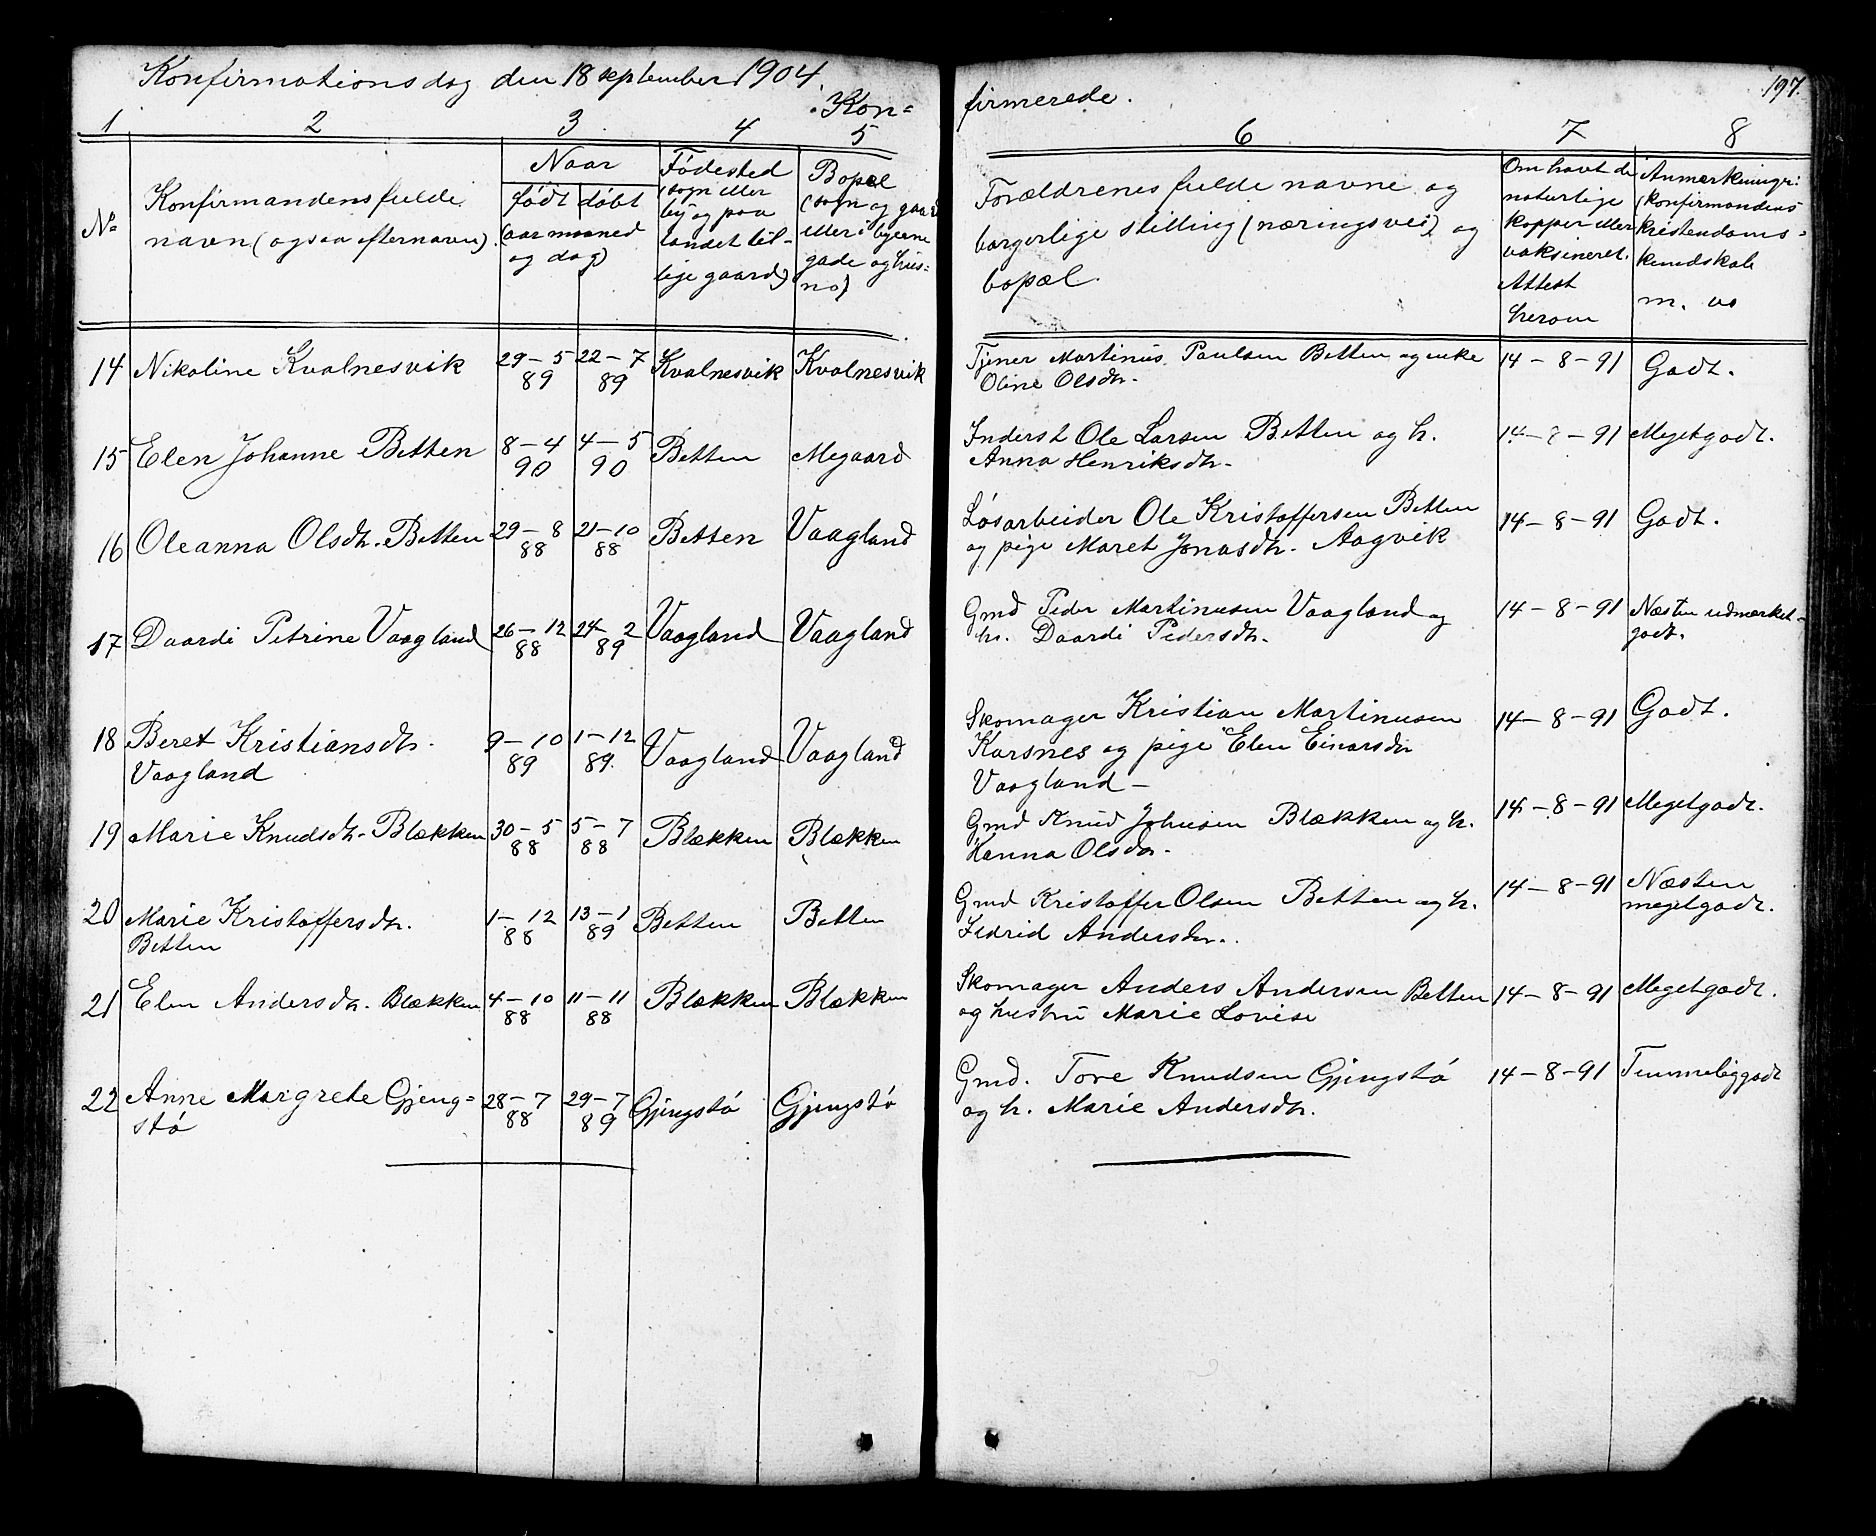 Konfirmationsdag den 18 september 1904.
Kon=
firmerede.
197.
1 2 3 4 5 6 7 8
No
Konfirmandens fulde
navn (ogsaa efternavn).
Naar
født døbt
(aar maaned
og dag)
Fødested
(sogn eller
by og paa
landet til-
lige gaard)
Bopæl
(sogn og gaard
eller i byerne
gade og hus-
no)
Forældrenes fulde navne og
borgerlige stilling (næringsvei) og
bopæl.
Om havt de
naturlige
kopper eller
vaksineret.
Attest
herom
Anmærkninger
(konfirmandens
kristendoms-
kundskab
m. v.
14 Nikoline Kvalnesvik 29-5 89 22-7 89 Kvalnesvik Kvalnesvik Tjener Martinus Paulsen Betten og enke 14-8-91 Godt.
Oline Olsdtr.
15 Elen Johanne Betten 8-4 90 4-5 90 Betten Megaard Inderst Ole Larsen Betten og h. 14-8-91 Megetgodt.
Anna Henriksdtr.
16 Oleanna Olsdtr. Betten 29-8 88 21-10 88 Betten Vaagland Løsarbeider Ole Kristoffersen Betten 14-8-91 Godt.
og pige Maret Jonasdtr. Aagvik
17 Daardi Petrine Vaagland 26-12 88 24-2 89 Vaagland Vaagland Gmd Peder Martinusen Vaagland og 14-8-91 Næsten udmerket-
h. Daardi Pedersdtr. godt.
18 Beret Kristiansdtr. 9-10 89 1-12 89. Vaagland Vaagland Skomager Kristian Martinusen 14-8-91 Godt.
Vaagland Karsnes og pige Elen Einarsdtr
Vaagland-
19 Marie Knudsdtr. Blækken 30-5 88 5-7 88 Blækken Blækken Gmd Knud Johnsen Blækken og h. 14-8-91 Megetgodt.
Hanna Olsdtr.
20 Marie Kristoffersdtr. 1-12 88 13-1 89 Betten Betten Gmd Kristoffer Olsen Betten og h. 14-8-91 Næsten
Betten Sidrid Andersdtr. megetgodt.
21 Elen Andersdtr. Blækken 4-10 88 11-11 88 Blækken Blækken Skomager Anders Andersen Betten 14-8-91 Megetgodt.
og hustru Marie Lovise
22 Anne Margrete Gjeng= 28-7 88 29-7 89 Gjengstø Gjengstø Gmd. Tore Knudsen Gjengstø 14-8-91 Temmeliggodt
stø og h. Marie Andersdtr.